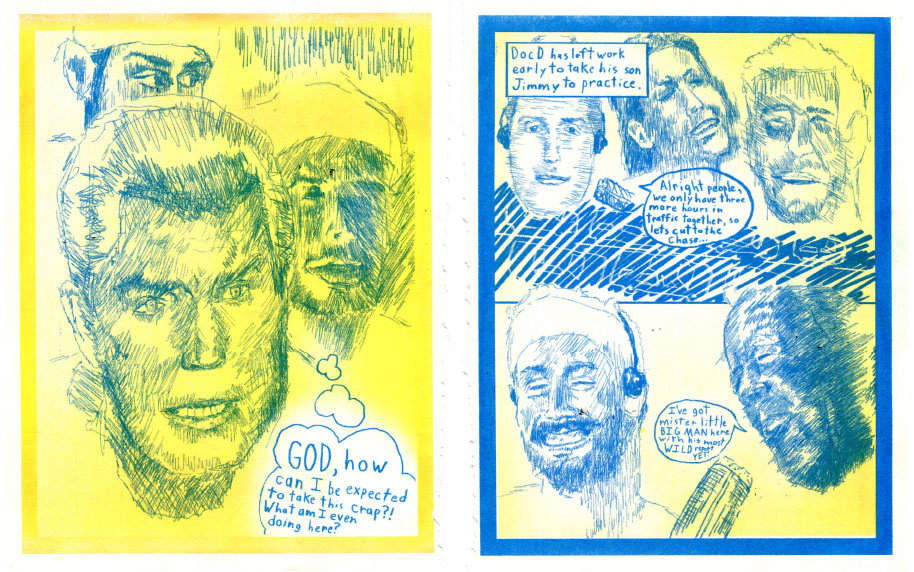 GOD, how
can I be expected
to take this crap?!
What am I even
doing here?
Doc D has left work
early to take his son
Jimmy to practice.
Alright people,
we only have three
more hours in
traffic together, so
lets cut to the
Chase...
I've got
mister little
BIG MAN here
with his most
WILD
YET!